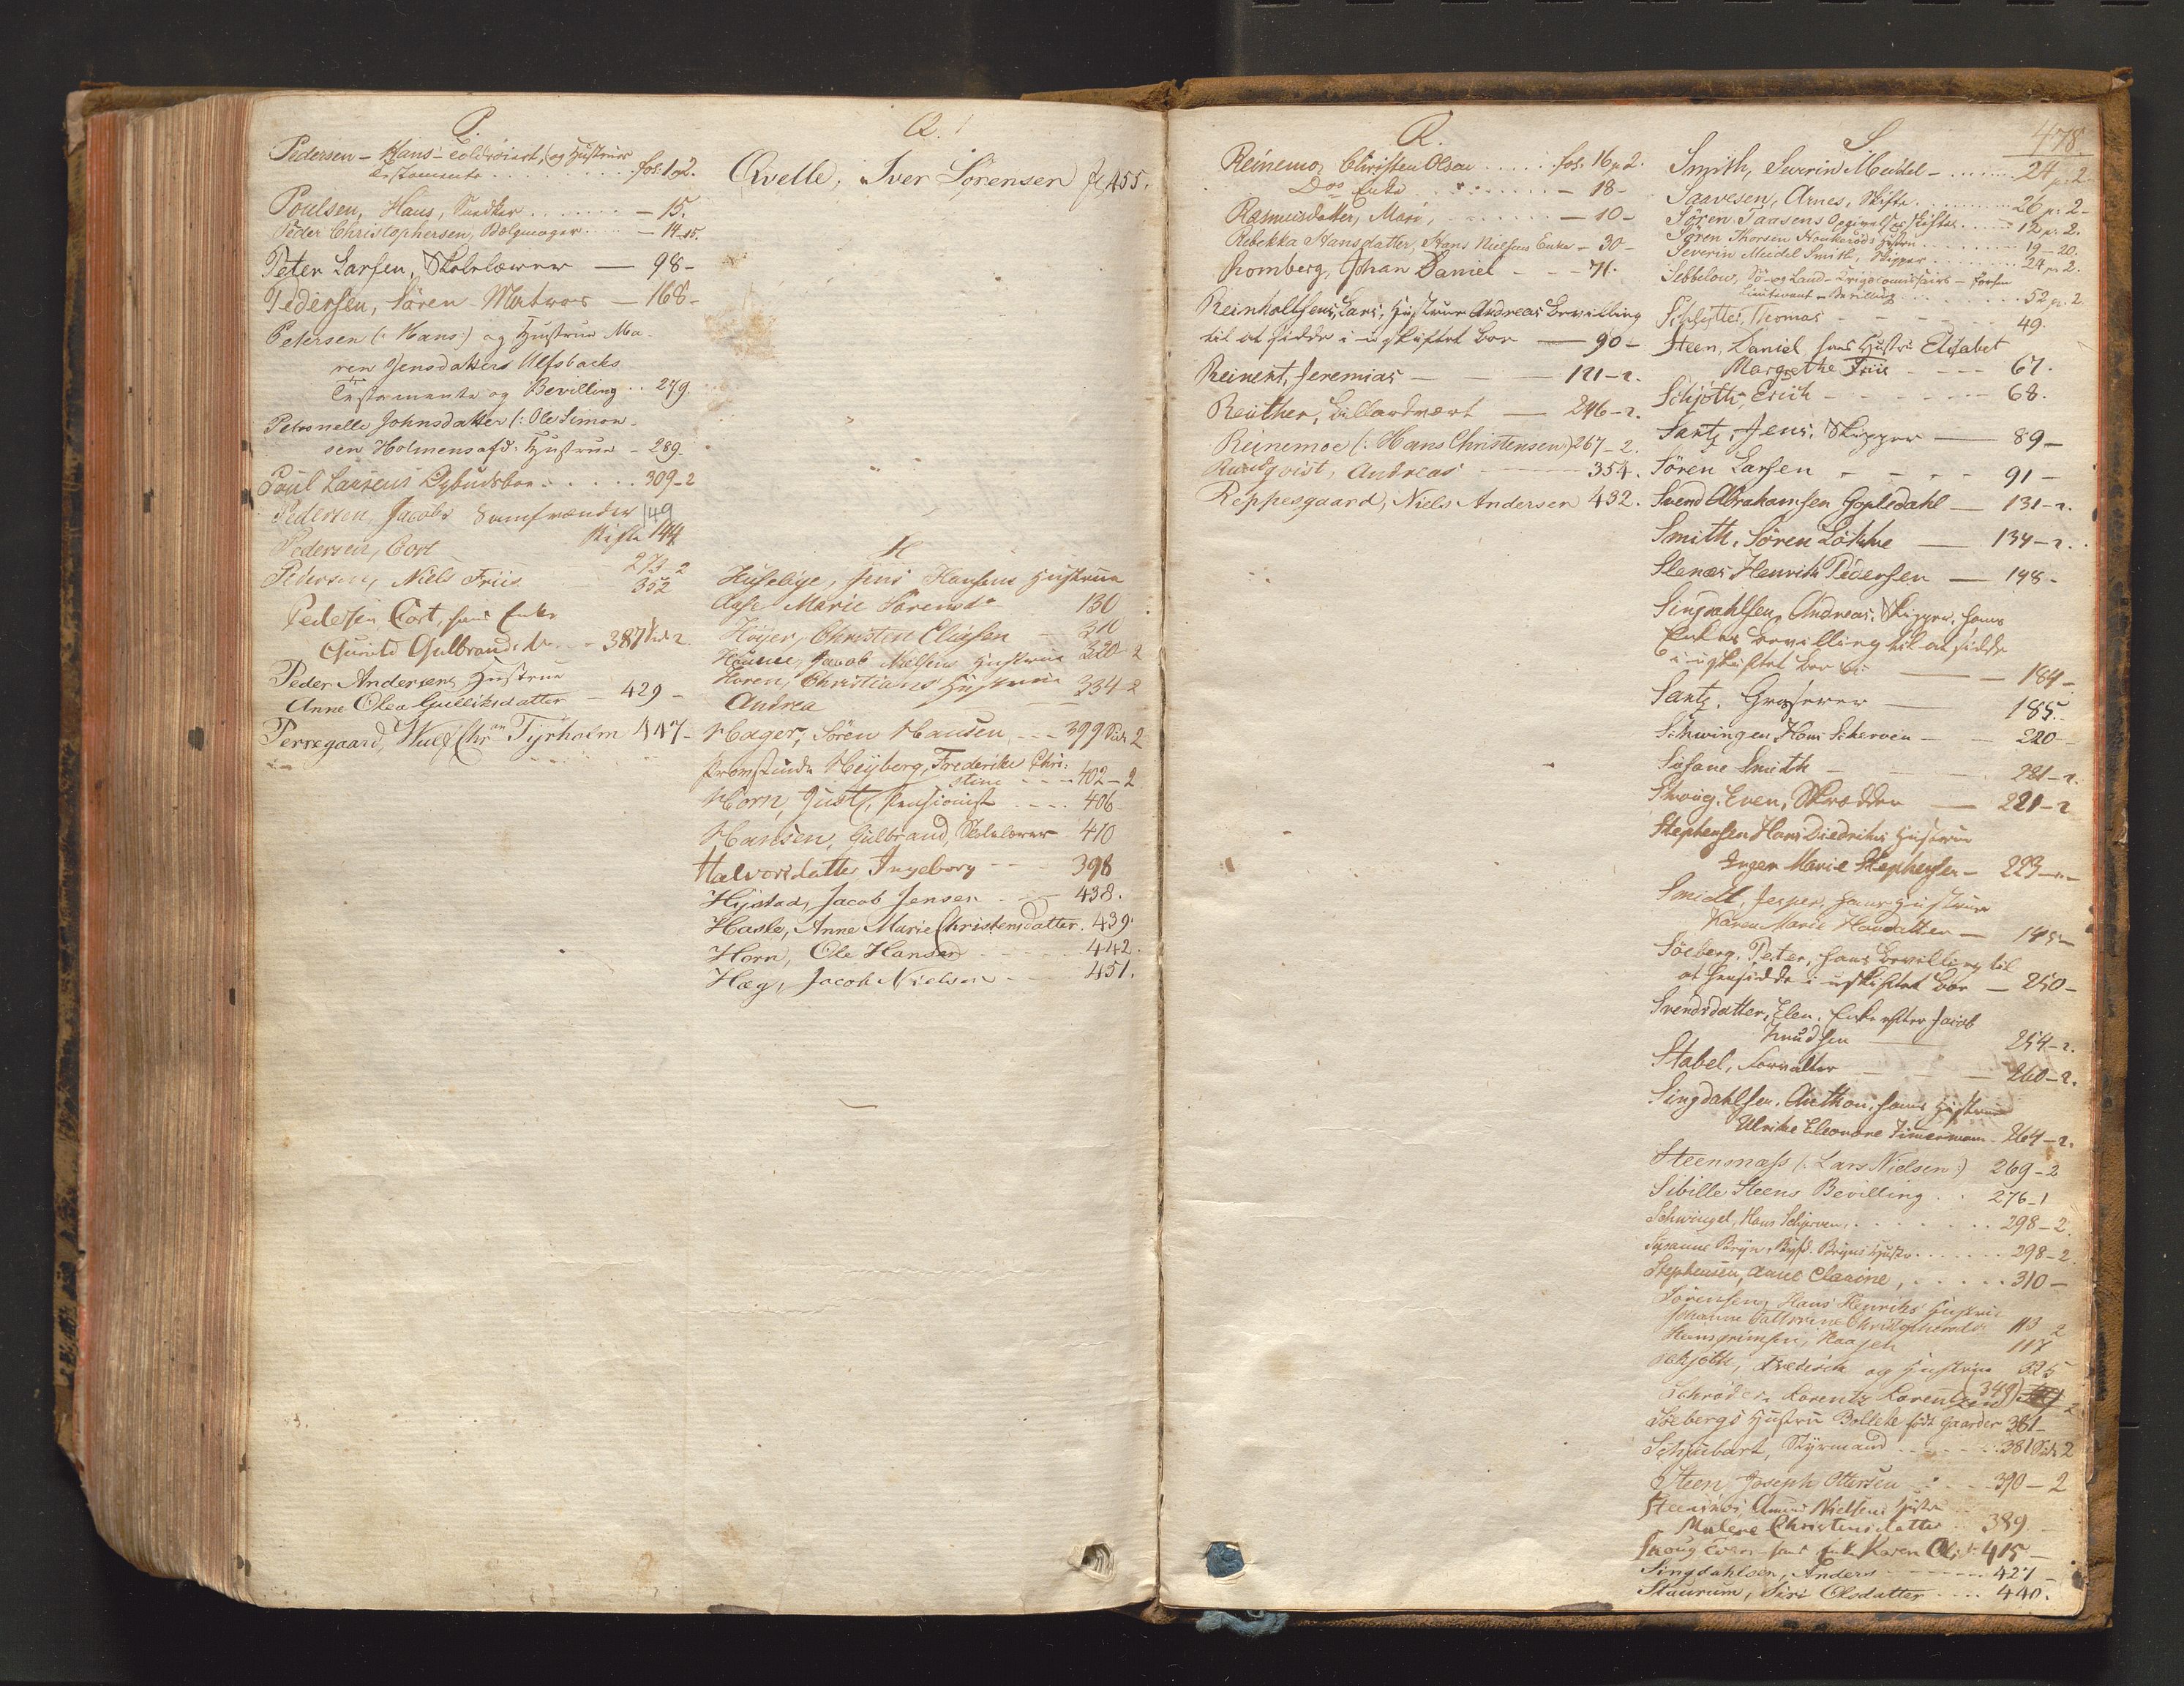 P.
Pedersen - Hans - og Hustrues
Testamente . . . . . . . . fol. 1 p 2.
Poulsen, Hans, Snedker . . . . . . — 15.
Peder Christophersen, Bælgmager . . . . — 14_15.
Peter Larsen, Skolelærer — 98-
Pedersen, Sören Matros — 168-
Petersen (: Hans :) og Hustrue Ma-
ren Jensdatters Alfsbacks
Testamente og Bevilling . . 279.
Petronelle Johnsdatter (: Ole Simon-
sen Holmens afd: Hustrue - 289.
Poul Larsens Opbudsboe . . . . . . 309_2
Pedersen, Jacobs Samfrænder 149
Skifte 144
Pedersen, Cort 273-2
Pedersen, Niels Friis 352
Pedersen Cort, hans Enke
Gunild Gulbrandsdr - - 387 Side 2
Peder Andersens Hustrue
Anne Olea Gulliksdatter — 429 -
Perregaard, Wulf Chran Tyrholm 447-
Q.
Qvelle, Iver Sörensen fol 455.
H
Huselige, Jens Hansens Hustrue
Aase Marie Sörensdr 130
Höyer, Christen Eliassen — 310
Hanne, Jacob Nielsens Hustrue 320-2
Horen, Christians Hustrue
Andrea — 334-2
Hager, Sören Hansen - - - 399 Side 2
Heyberg, Frederike Chri-
stine - - - 402-2
Horn, Just, Pensionist . . . . 406
Hansen, Gulbrand, Skolelærer 410
Halvorsdatter Ingeborg - - - 398
Hystad, Jacob Jensen - - - 438.
Hasle, Anne Marie Christensdatter. 439.
Horn, Ole Hansen - - - - - - 442.
Hæg, Jacob Nielsen - - - 451.
R.
Reinemo, Christen Olsen . . . . . fol. 16 p 2.
Dos Enke . . . . . . . . — 18-
Rasmusdatter, Mari, . . . . . . — 10-
Rebekka Hansdatter, Hans Nielsens Enke - 30-
Romberg, Johan Daniel - - - 71.
Reinholtsens, Lars, Hustrue Andreas Bevilling
til at sidde i uskiftet Boe — 90-
Reinert, Jeremias — — — 121-2.
Reuther, Billardvært — 246-2.
Reinemoe (: Hans Christensen) 267-2.
Rundqvist, Andreas 354.
Reppesgaard, Niels Andersen 432.
478.
S.
Smith, Severin Meidel - . . . . . . 24 p. 2.
Saavesen, Arnes, Skifte . . . . . . . 26 p. 2-
Sören Tamsens Opgivelse Skifte . . . . . 12 p. 2.
Sören Thorsen Hustru . . . . . . . . 19_20.
Severin Meidel Smith, Skipper . . . . . . . . 24 p. 2.
Sebbelow, Sö- og Land-Krigscomissairs -
Lieutenant Bevilling . . . . . . . . . 52 p. 2.
Schlytter, Thomas - - - - - 49.
Steen, Daniel hans Hustru Elisabet
Margrethe Friis - - - - 67.
Schjöth, Erich - - - - - - 68.
Santz, Jens, Skipper — 89-
Sören Larsen - - - - - 91-
Svend Abrahamsen Gopledahl — 131-2.
Smith, Sören Lökke — 134-2.
Stenaes Henrik Pedersen — 148-
Singdahlsen, Andreas, Skipper, hans
Enkes bevilling til at sidde
i uskiftet boe — — 184-
Santz, Grosserer — 185.
Schwingen Hans Scherven — — 220-
Susane Smith — — 281-2.
Skoug, Even, Skrædder — 221-2
Stephensen Hans Diedriks Hustrue
Inger Marie Stephensen — 223-
Smidt, Jesper, hans Hustrue
Karen Marie Hansdatter — 145-
Söeberg, Peter, hans bevilling til
at hensidde i uskiftet boe — 250-
Svendsdatter, Elen, Enke efter Jacob
Knudsen — 254-2.
Stabel, Forvalter — — — 260-2.
Singdahlsen, Anthon, hans Hustrue
Ulrike Eleonore Timmermann - 264-2.
Steenmass (: Lars Nielsen :) 269-2
Sibille Steens Bevilling . . 276-1
Schwingel, Hans Schjerven, . . . . . . . 298-2.
Susanne Bryn, Bryns Hustr. . . . . . . . 298-2
Stephensen, Anne Clarine, . . . . . 310-
Sörensen, Hans Henriks Hustrue
Johanne Cathrine 113 2
Haagen 117
Schjöth, Frederik og Hustrue 325
Schröder Lorentz Lorentzen (349)
Söebergs Hustru Bollete född Gaarder 361-
Schubart, Styrmand . . . . . . 381 Side 2
Steen, Joseph Ottersen - - - 390-2
Amund Nielsens Hustr
Malene Christensdatter - 389
Skoug Even hans Enke Karen Olsd 415-
Singdahlsen, Anders - - - - - - 427-
Staurum, Siri Olsdatter - - - - 440.